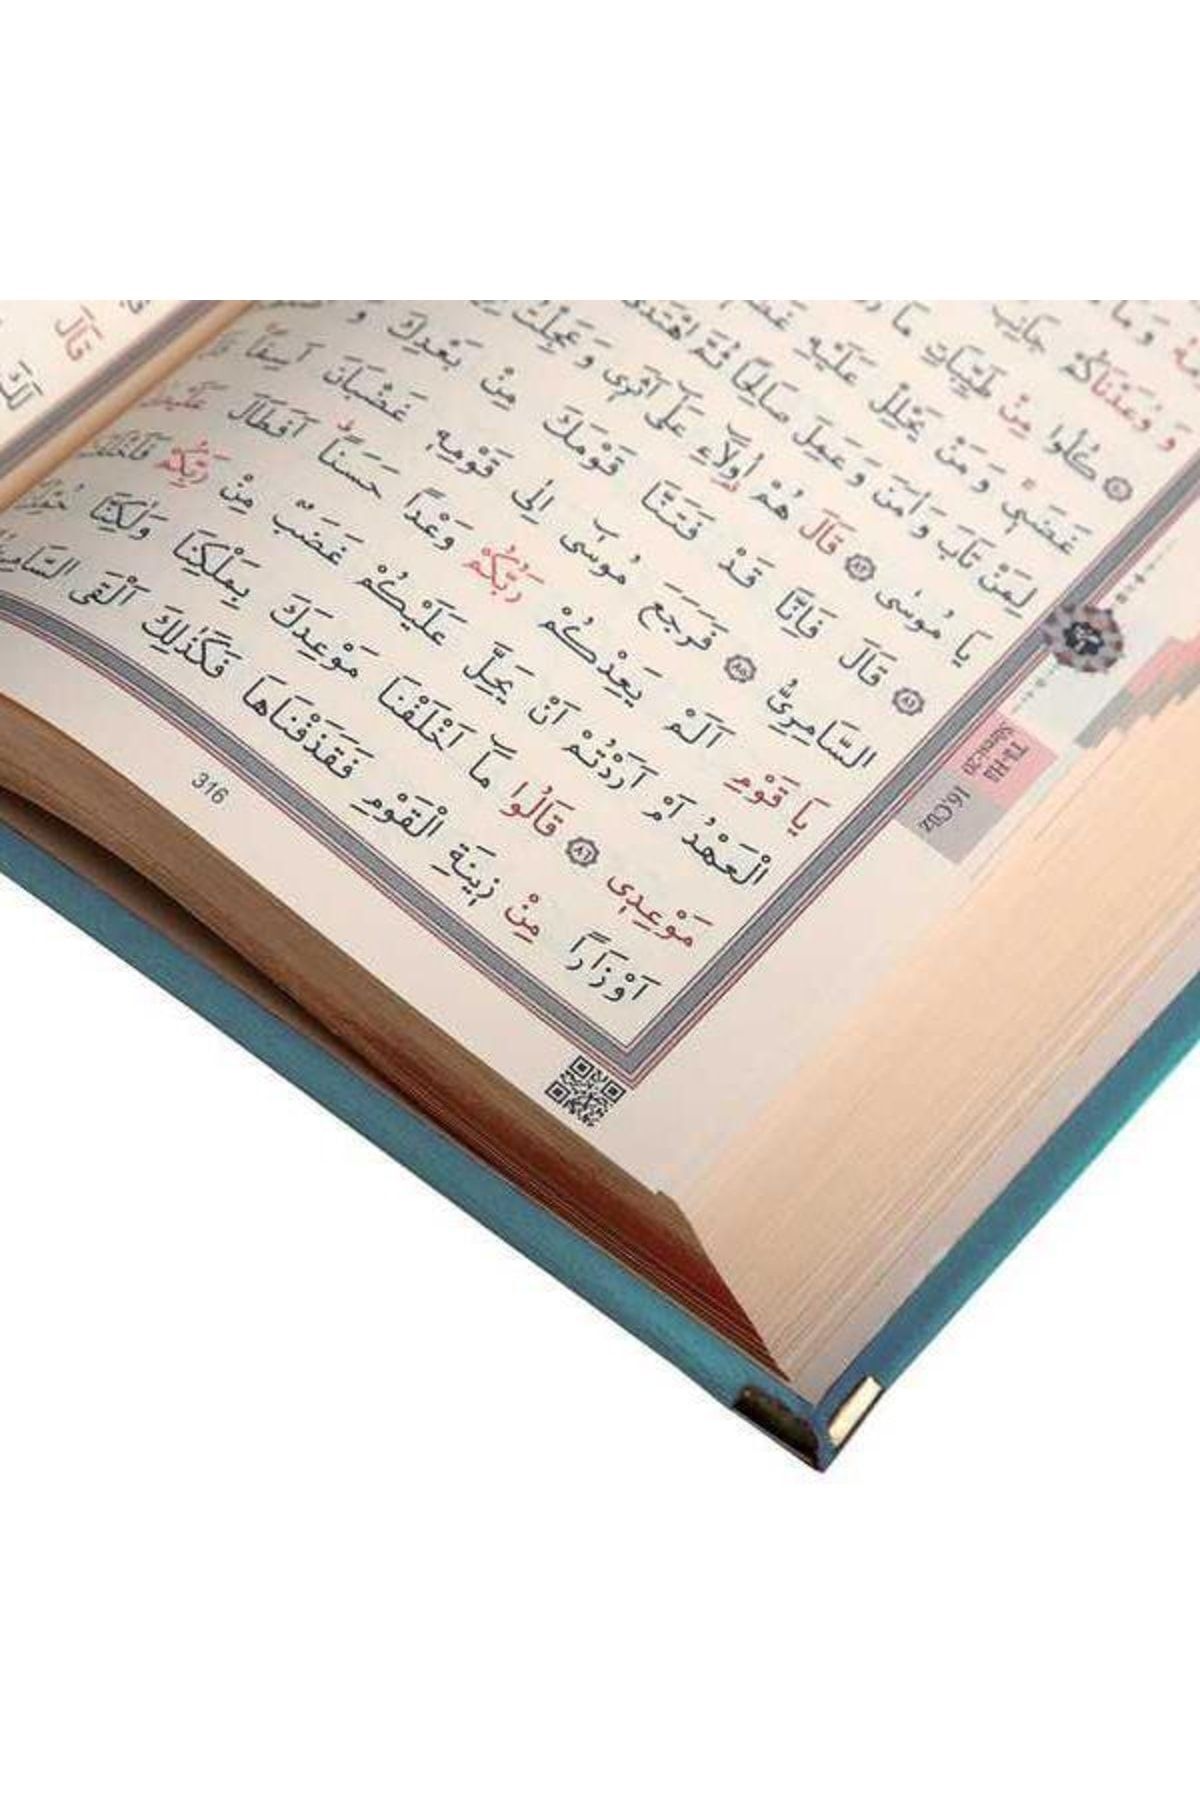 وَمَا
وَوٰعَدْنَاكُمْ جَانِبَ
﴿٨٠﴾ كُلُوا مِنْ طَيِّبَاتِ مَا
غَضَبٖي وَمَنْ يَحْلِلْ عَلَيْهِ
لِمَنْ تَابَ وَاٰمَنَ وَعَمِلَ صَالِحًا ثُمَّ اهْتَدٰى
يَا مُوسٰى ﴿٨٣﴾ قَالَ هُمْ اُولَٓاءِ عَلٰٓى اَثَرٖي وَعَجِلْتُ
﴿٨٤﴾ قَالَ فَاِنَّا قَدْ فَتَنَّا قَوْمَكَ مِنْ بَعْدِكَ وَ
السَّامِرِيُّ ﴿٨٥﴾ فَرَجَعَ مُوسٰٓى اِلٰى قَوْمِهٖ غَضْبَانَ اَسِفًا
يَا قَوْمِ اَلَمْ يَعِدْكُمْ رَبُّكُمْ وَعْدًا حَسَنًا اَفَطَالَ
الْعَهْدُ اَمْ اَرَدْتُمْ اَنْ يَحِلَّ عَلَيْكُمْ غَضَبٌ مِنْ رَبِّكُمْ
مَوْعِدٖي ﴿٨٦﴾ قَالُوا مَٓا اَخْلَفْنَا مَوْعِدَكَ بِمَلْكِنَا وَلٰكِنَّا
اَوْزَارًا مِنْ زٖينَةِ الْقَوْمِ فَقَذَفْنَاهَا فَكَذٰلِكَ اَلْقَى
316
Tâ-Hâ
Sûresi:20
16.Cüz
قَالَ